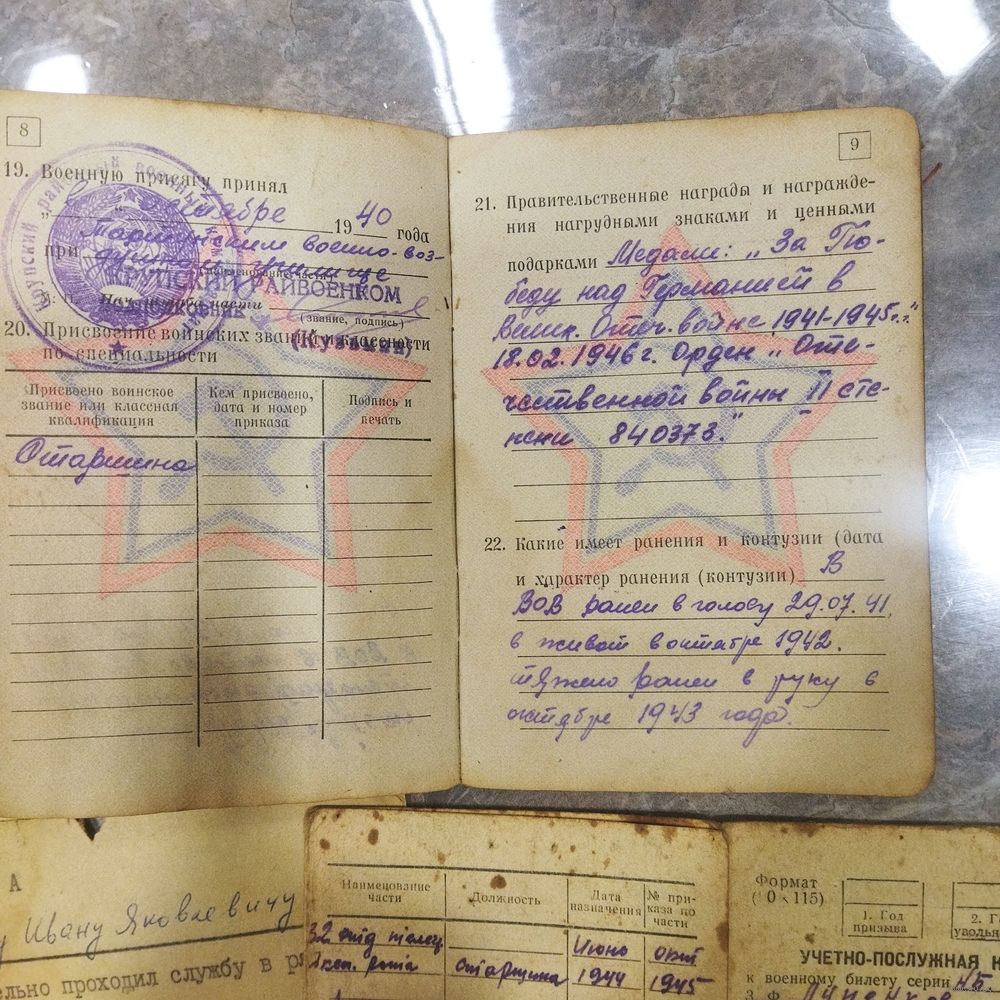 8
19. Военную присягу принял
октябре 1940 года
при Мариинском военно-воз-
душном училище
КРУПСКИЙ РАЙВОЕНКОМ
М. П. Начальник части
ПОДПОЛКОВНИК
(звание, подпись)
20. Присвоение воинских званий и классности
по специальности
Присвоено воинское звание или классная квалификация
Кем присвоено, дата и номер приказа
Подпись и печать
Старшина
9
21. Правительственные награды и награжде-
ния нагрудными знаками и ценными
подарками Медали: „За По-
беду над Германией в
Велик. Отеч. войне 1941-1945г.г."
18.02.1946г. Орден „Оте-
чественной войны II сте-
пени 840373."
22. Какие имеет ранения и контузии (дата
и характер ранения (контузии) В
ВОВ ранен в голову 29.07.41,
в живот в октябре 1942.
тяжело ранен в руку в
октябре 1943 года.
А
Ивану Яковлевичу
проходил службу в
Наименование части
Должность
Дата назначения
№ приказа по части
32
Июнь окт
рота старшина 1944 1945
Формат
1. Год призыва
2. Г
УЧЕТНО-ПОСЛУЖНАЯ К
к военному билету серии
3. Ф